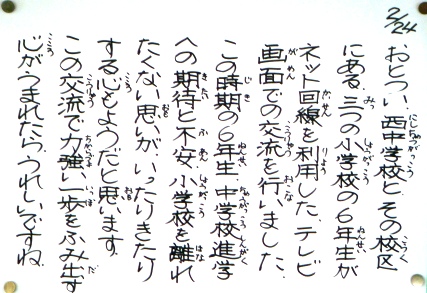 2/24
おとつい、西中学校と、その校区
にある、三つの小学校の6年生が
ネット回線を利用した、テレビ
画面での交流を行いました。
この時期の6年生、中学校進学
への期待と不安、小学校を離れ
たくない思いが、いったりきたり
する心もようだと思います。
この交流で力強い一歩をふみ出す
心がうまれたら、うれしいですね。